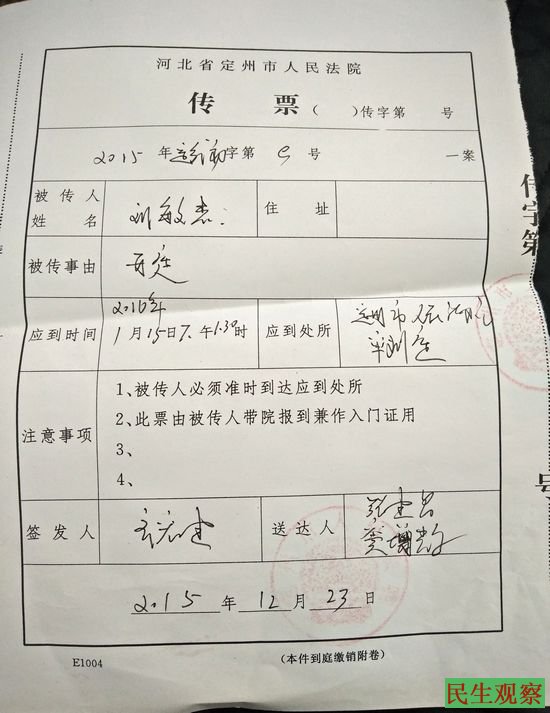 河北省定州市人民法院
传 票 ( )传字第 号
2015 年 字第 号 一案
被传人姓名 刘敏杰 住址
被传事由 开庭
应到时间 2016年1月15日下午1:30时 应到处所 定州市 法院
注意事项
1、被传人必须准时到达应到处所
2、此票由被传人带院报到兼作入门证用
3、
4、
签发人 送达人
2015 年 12 月 23 日
E1004 (本件到庭缴销附卷)
传字第
号
民生观察